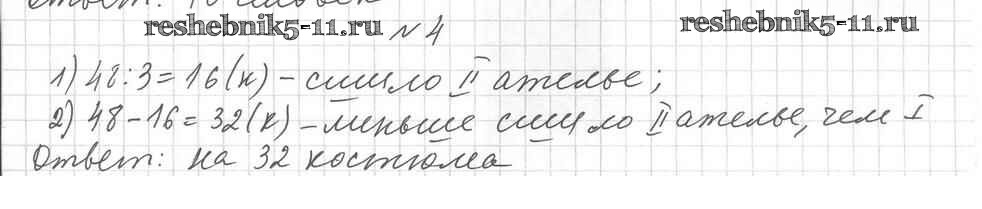 reshebnik5-11.ru №4 reshebnik5-11.ru
1) 48:3=16(к) – сшило II ателье;
2) 48-16=32(к) – меньше сшило II ателье, чем I
Ответ: на 32 костюма